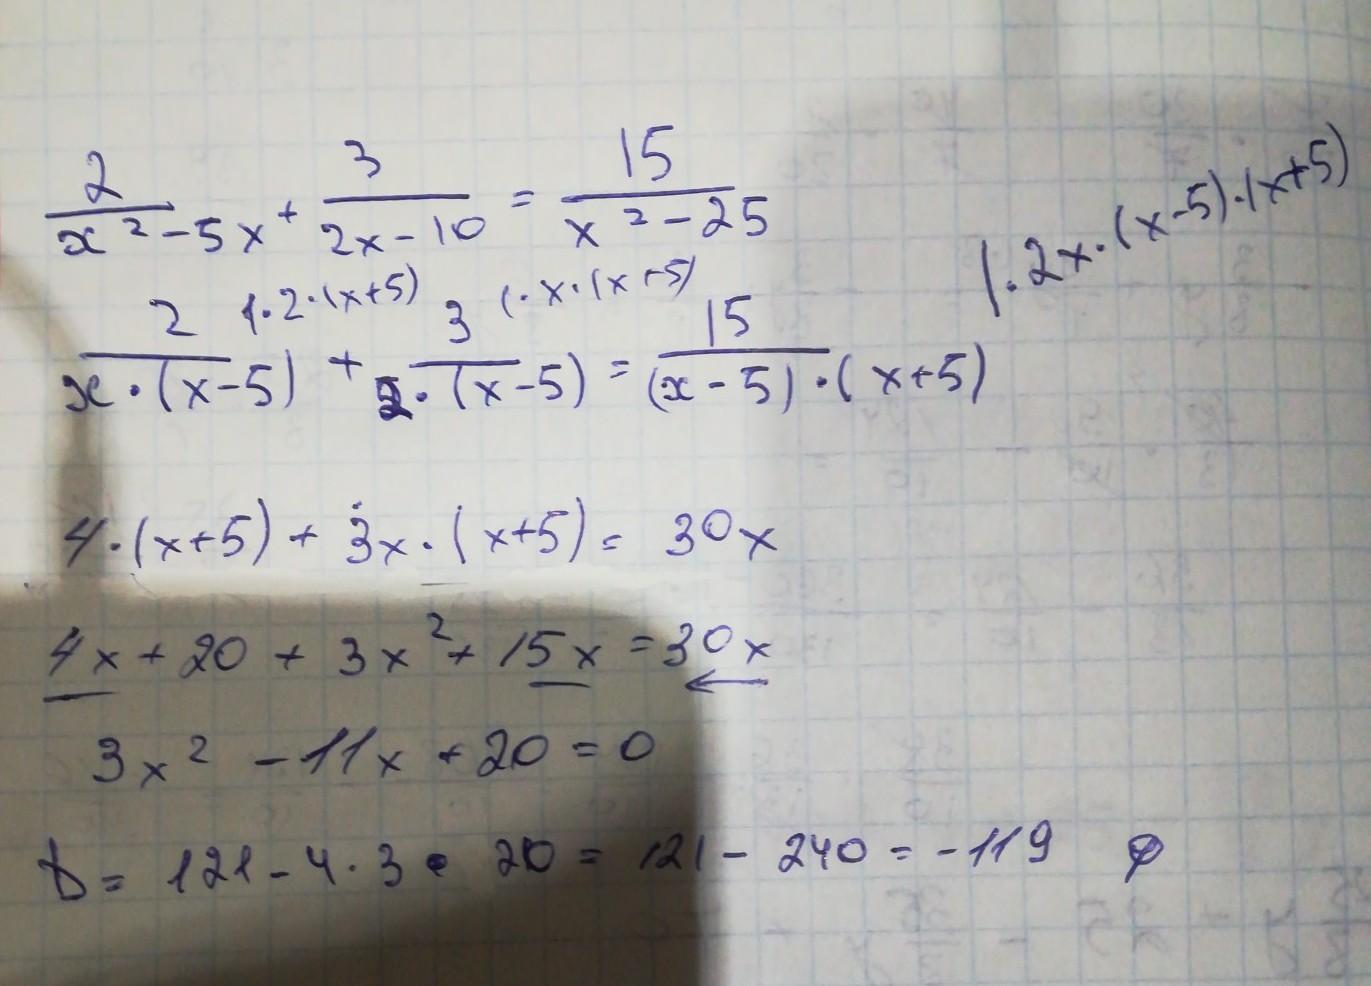 2/(x² - 5x) + 3/(2x - 10) = 15/(x² - 25)
2/(x · (x - 5)) |· 2 · (x+5) + 3/(2 · (x - 5)) |· x · (x+5) = 15/((x - 5) · (x+5)) |· 2x · (x-5) · (x+5)
4 · (x+5) + 3x · (x+5) = 30x
4x + 20 + 3x² + 15x = 30x
3x² - 11x + 20 = 0
D = 121 - 4 · 3 · 20 = 121 - 240 = -119 ∅